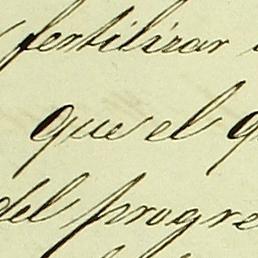 fertilizar
que el g
del progre